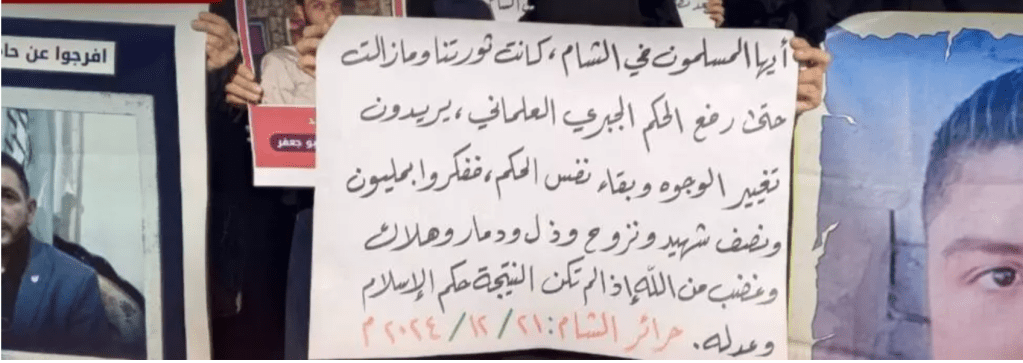 افرجوا عن
أيها المسلمون في الشام، كانت ثورتنا وما زالت
حتى رفع الحكم الجبري العلماني، يريدون
تغيير الوجوه وبقاء نفس الحكم، ففكروا بمليون
ونصف شهيد ونزوح وذل ودمار وهلاك
وغضب من الله إذا لم تكن النتيجة حكم الإسلام
وعدله. حرائر الشام: ٢١/١٢/٢٠٢٤م
بو جعفر